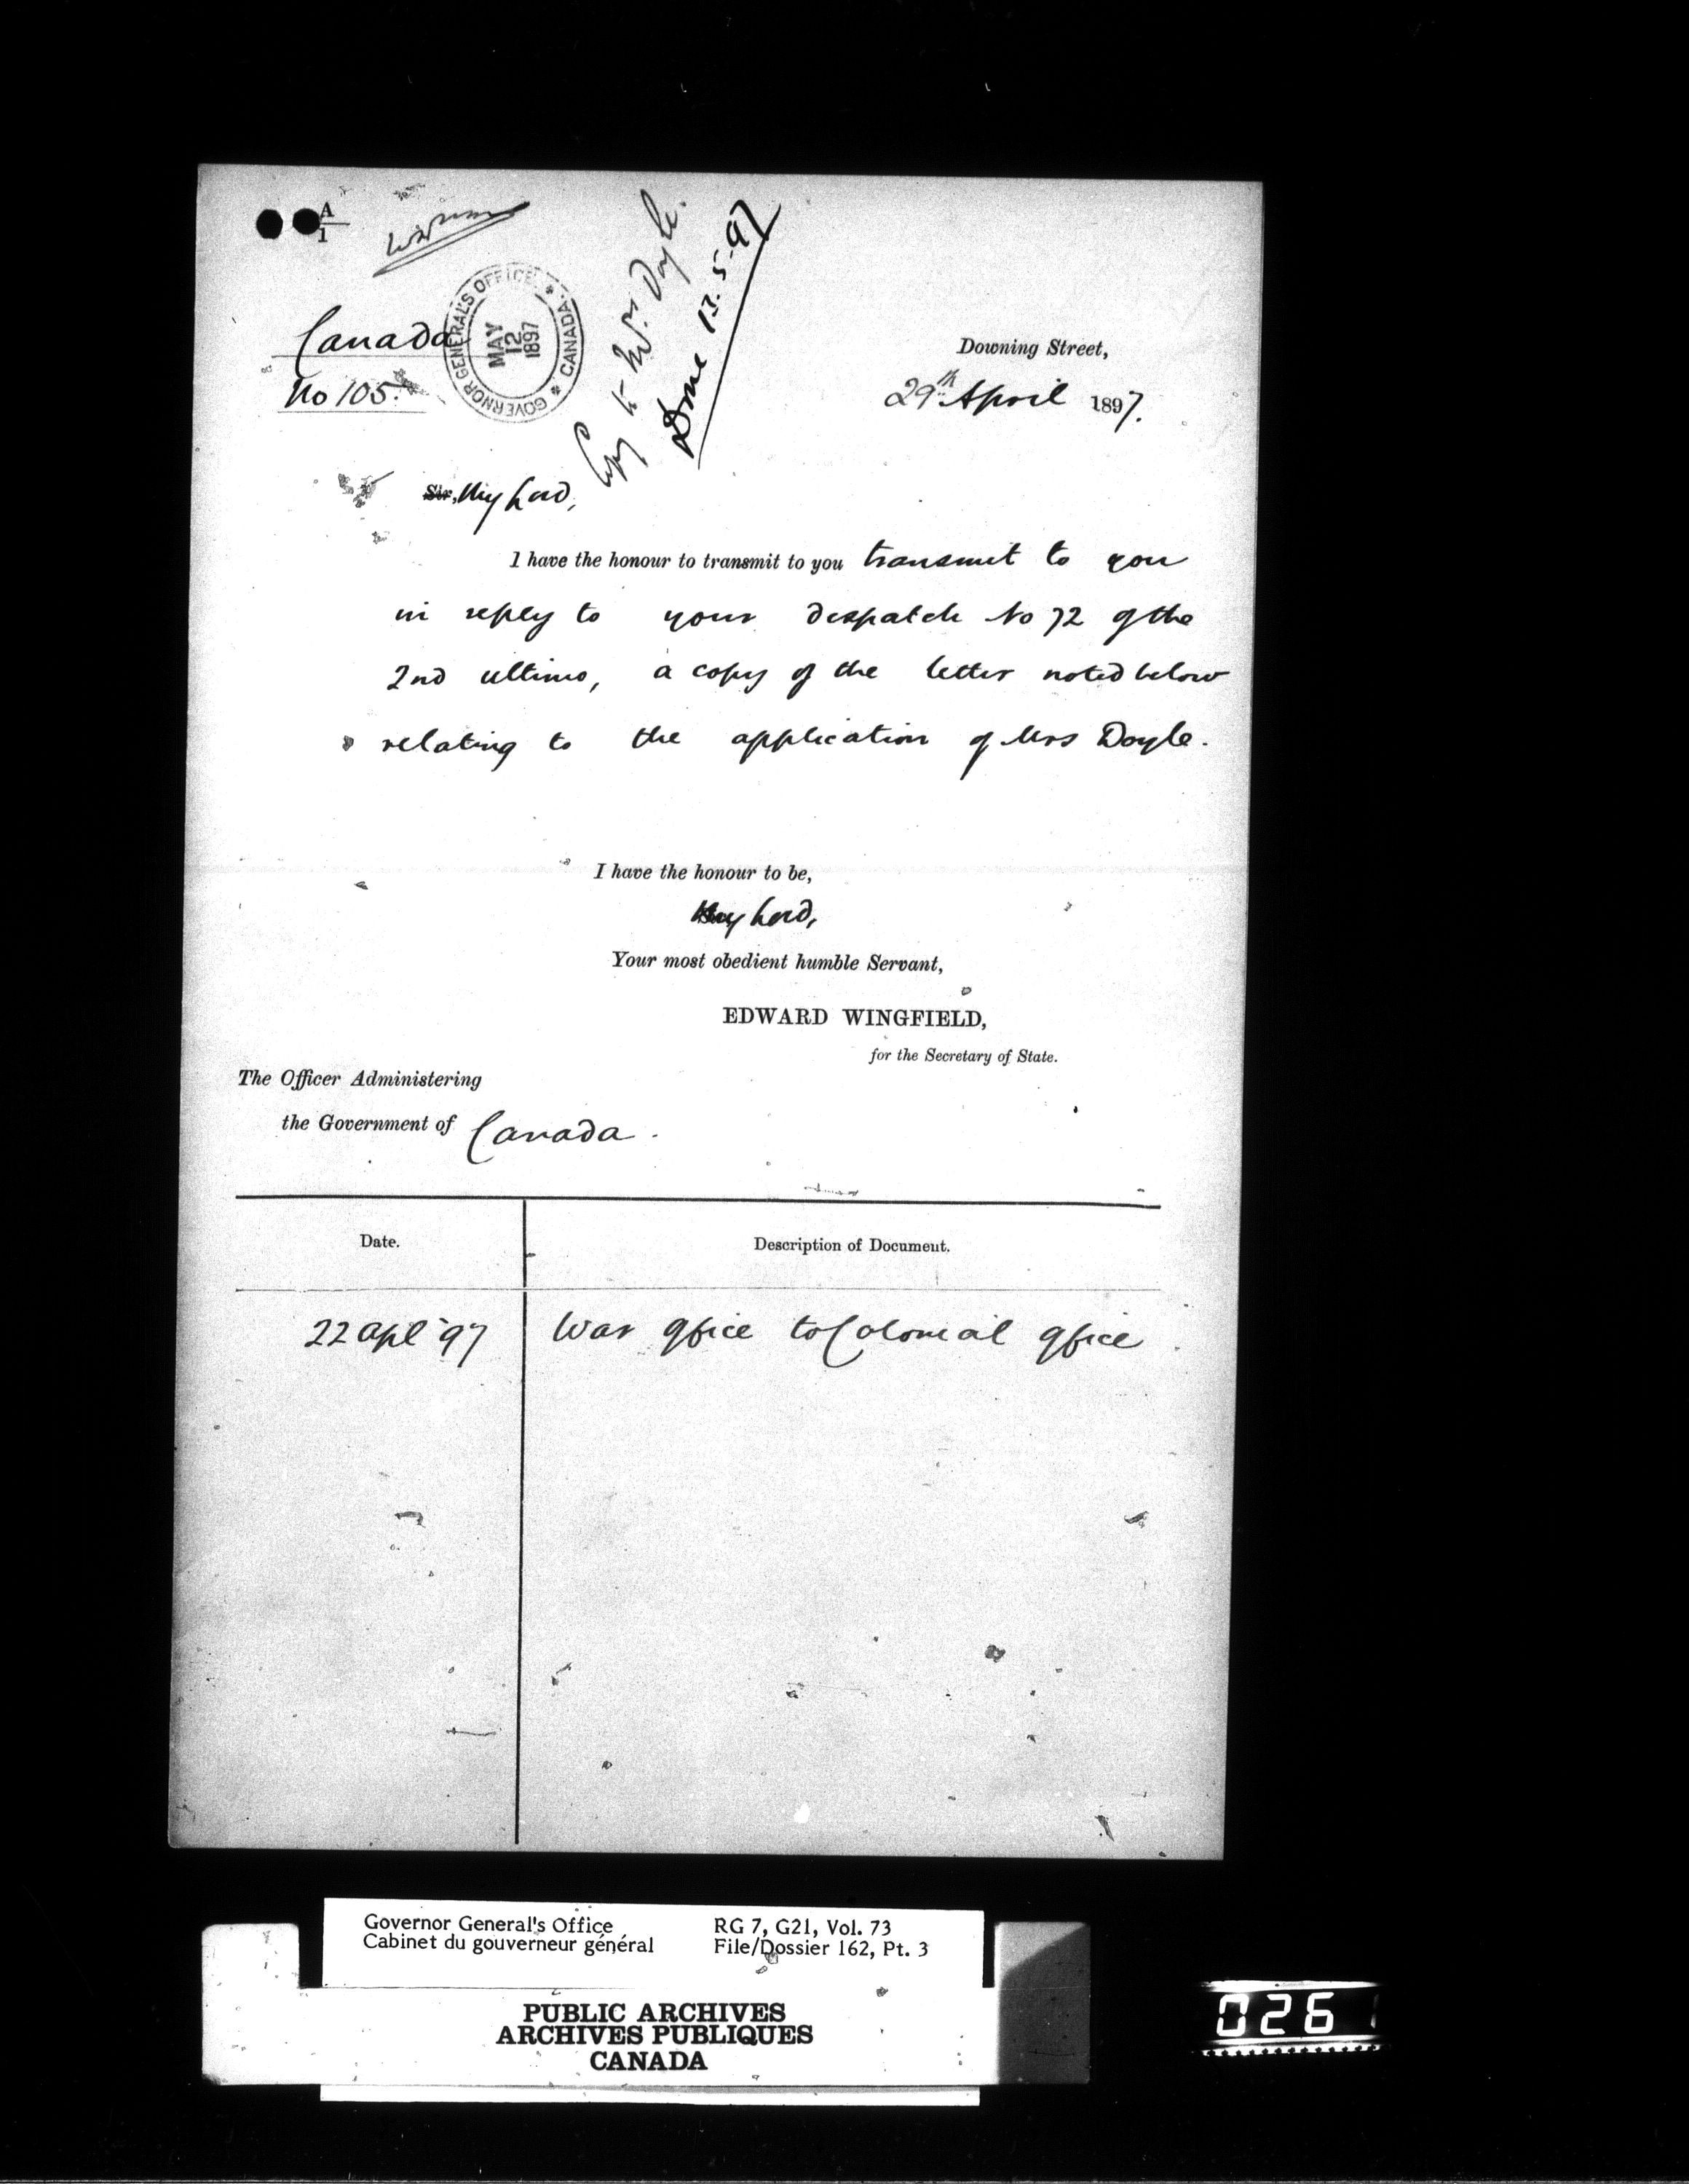 A
1
Canada
No 105.
GOVERNOR GENERAL'S OFFICE * CANADA *
MAY
12
1897
Copy to Mrs. Doyle.
Done 13.5.97
Downing Street,
29th April 1897.
Sir, My Lord,
I have the honour to transmit to you transmit to you
in reply to your despatch No 72 of the
2nd ultimo, a copy of the letter noted below
relating to the application of Mrs Doyle.
I have the honour to be,
My Lord,
Your most obedient humble Servant,
EDWARD WINGFIELD,
for the Secretary of State.
The Officer Administering
the Government of Canada.
Date.
Description of Document.
22 Apl 97
War Office to Colonial Office
Governor General's Office
Cabinet du gouverneur général
RG 7, G21, Vol. 73
File/Dossier 162, Pt. 3
PUBLIC ARCHIVES
ARCHIVES PUBLIQUES
CANADA
026